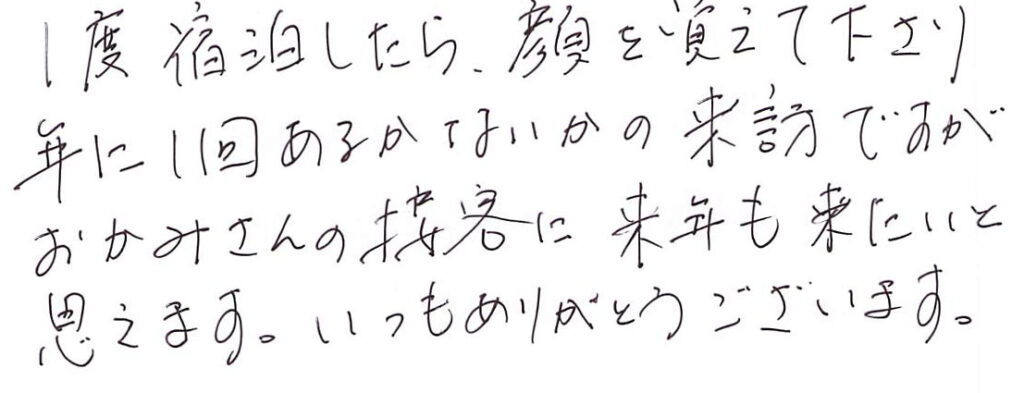 1度宿泊したら、顔を覚えて下さり
年に1回あるかないかの来訪ですが
おかみさんの接客に来年も来たいと
思えます。いつもありがとうございます。